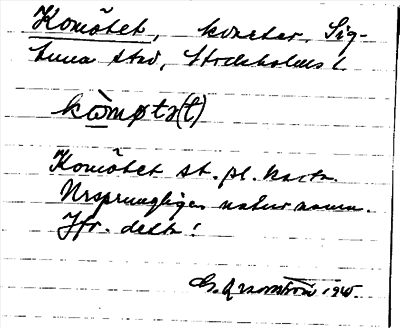 Komötet, kvarter, Sig-
tuna stad, Stockholms l
kòmøtə(t)
Komötet st. pl. karta.
Ursprungligen naturnamn.
Jfr. detta!
G. Arnström 1945.